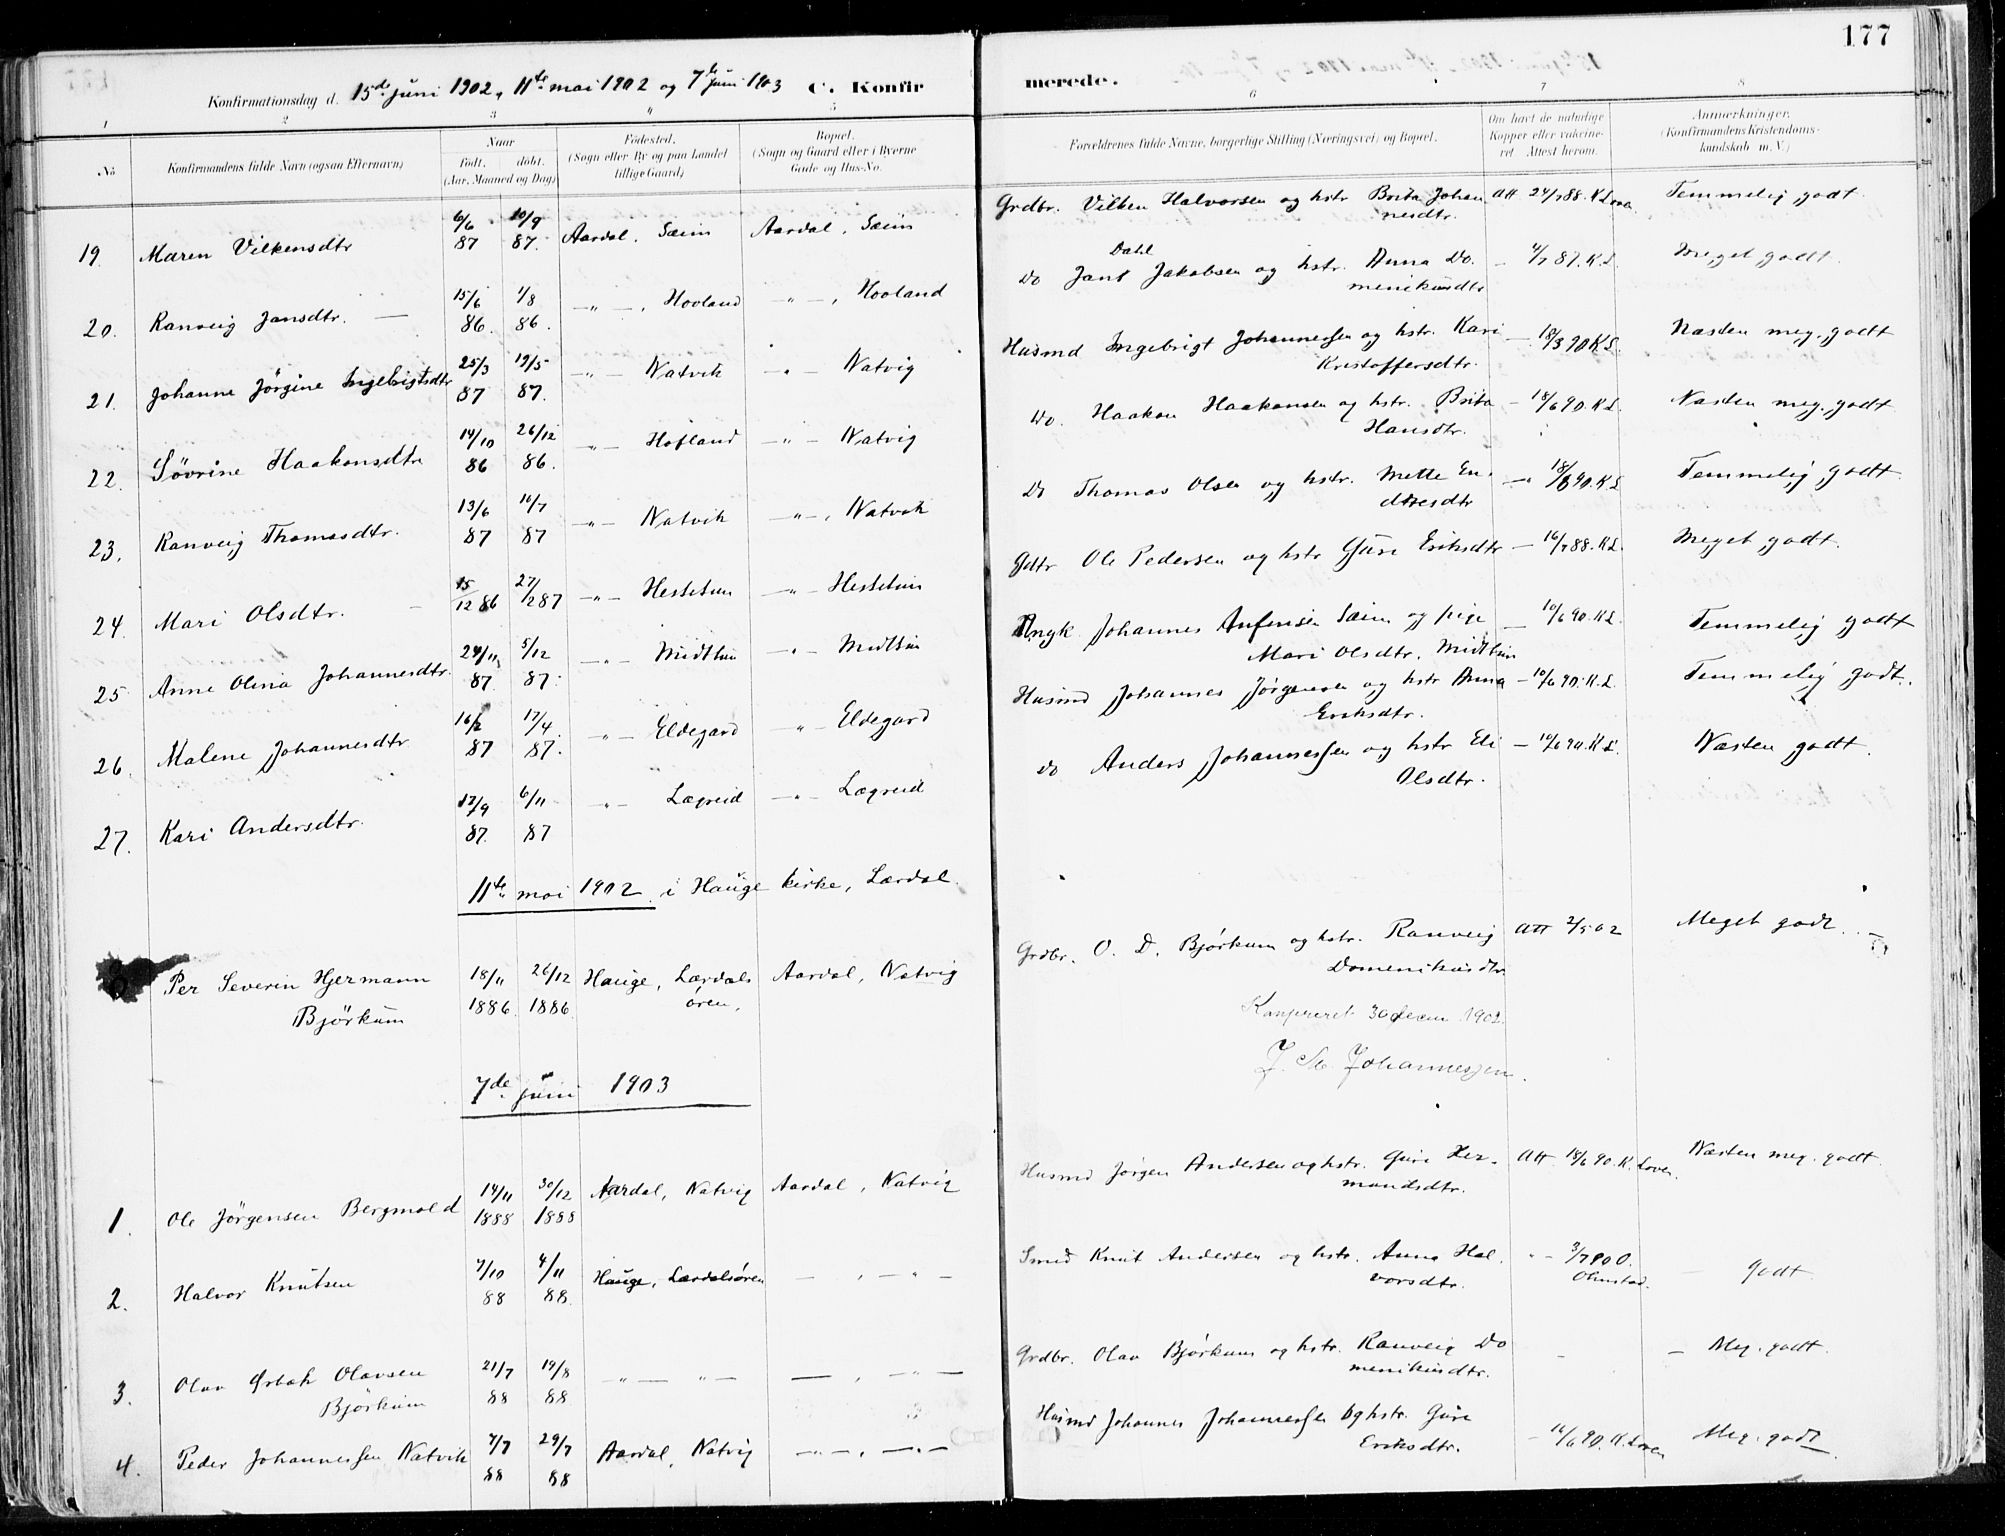 177
Konfirmationsdag d. 15de juni 1902, 11te mai 1902 og 7de juni 1903 C. Konfirmerede.
1 2 3 4 5 6 7 8
No
Konfirmandens fulde Navn (ogsaa Efternavn)
Naar født. døbt. (Aar, Maaned og Dag)
Fødested. (Sogn eller By og paa Landet tillige Gaard)
Bopæl. (Sogn og Gaard eller i Byerne Gade og Hus-No.
Forældrenes fulde Navne, borgerlige Stilling (Næringsvei) og Bopæl.
Om havt de naturlige Kopper eller vakcineret. Attest herom.
Anmerkninger. (Konfirmandens Kristendomskundskab m. V.)
19. Maren Vilkensdtr 6/6 87 10/9 87. Aardal, Sæim Aardal, Sæim Grdbr. Vilken Halvorsen og hstr Brita Johannesdtr. Att 24/7 88. K Temmelig godt
20. Ranveig Jansdtr. 15/6 86. 1/8 86. -"-, Hovland -"-, Hovland Do Jant Jakobsen Dahl og hstr. Anna Domenikusdtr - 4/7 87. K.L. Meget godt.
21. Johanne Jørgine Ingebrigtsdtr 25/3 87 19/5 87. -"- Natvik -"- Natvig Husmd Ingebrigt Johannessen og hstr. Kari Kristoffersdtr. - 18/3 90 K L. Næsten meg. godt
22. Søvrine Haakonsdtr 14/10 86 26/12 86. -"- Hofland -"- Natvig Do. Haakon Haakonsen og hstr. Brita Hansdtr. - 18/6 90. K L. Næsten meg. godt
23. Ranveig Thomasdtr. 13/6 87 16/7 87 -"- Natvik -"-, Natvik Do Thomas Olsen og hstr. Mette Endresdtr -"- 18/6 90. K L Temmelig godt.
24. Mari Olsdtr. 15/12 86 27/2 87 -"- Hestetun -"- Hestetun Gdbr Ole Pedersen og hstr Guri Eriksdtr - 16/7 88. K L. Meget godt.
25 Anne Olina Johannesdtr. 24/11 87 5/12 87. -"- Midttun -"- Midttun Ungk. Johannes Anfinsen Sæim og pige Mari Olsdtr. Midttun - 10/6 90. K L. Temmelig godt
26. Malene Johannesdtr 16/2 87 17/4 87. -"- Eldegard -"- Eldegard Husmd Johannes Jørgensen og hstr Anna Eriksdtr. - 10/6 90. K. L. Temmelig godt.
27. Kari Andersdtr. 17/9 87. 6/11 87 -"- Lægreid -"- Lægreid Do Anders Johannessen og hstr Eli Olsdtr. - 10/6 90. K L. Næsten godt.
11te mai 1902 i Hauge kirke, Lærdal.
Per Severin Hjermann Bjørkum 18/11 1886. 26/12 1886 Hauge, Lærdalsøren, Aardal, Natvig Grdbr. O. D. Bjørkum og hstr. Ranveig Domenikusdtr Att 2/5 02 Meget godt.
Konfereret 30 decem 1902.
J. M. Johannessen.
7de juni 1903
1. Ole Jørgensen Bergmold 14/11 1888 30/12 1888 Aardal, Natvig Aardal, Natvig Husmd Jørgen Andersen og hstr. Guri Hermundsdtr. Att 18/6 90. K. Loven. Næsten meg. godt.
2. Halvor Knutsen 7/10 88 4/11 88 Hauge, Lærdalsøren - , - " - Smed Knut Andersen og hstr. Anna Halvorsdtr. " - 3/7 90 O. Olmstad. - Godt
3. Olav Ørbæk Olavsen Bjørkum 21/7 88 19/8 88 -"- "- - , -"- Grdbr. Olav Bjørkum og hstr. Ranveig Domenikusdtr. - - Meg. godt.
4. Peder Johannessen Natvik 7/7 88 29/7 88 Aardal, Natvig -"-, -"- Husmd Johannes Johannessen og hstr. Guri Eriksdtr. - 16/6 90. K. Loven Meg. godt.